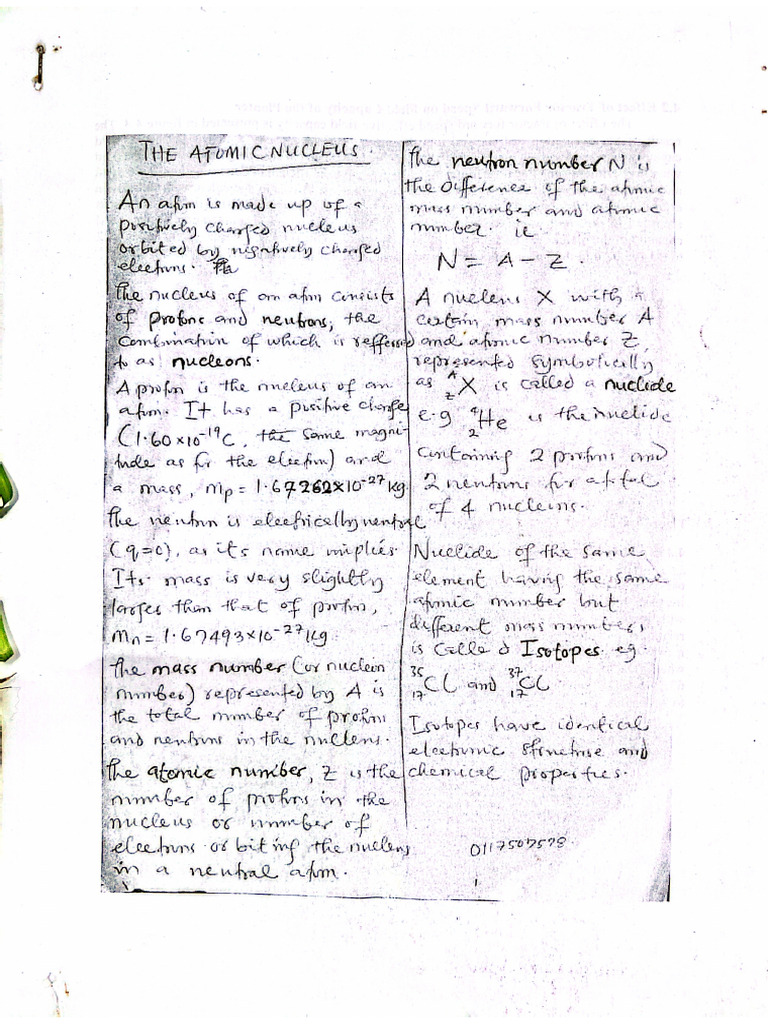 THE ATOMIC NUCLEUS.
An atom is made up of a
positively charged nucleus
orbited by negatively charged
electrons.
The nucleus of an atom consists
of protons and neutrons; the
combination of which is reffered
to as nucleons.
A proton is the nucleus of an
atom. It has a positive charge
(1.60×10⁻¹⁹C, the same magni-
tude as for the electron) and
a mass, mp = 1.67262×10⁻²⁷kg.
The neutron is electrically neutral
(q=0), as its name implies.
Its mass is very slightly
larger than that of proton,
mn = 1.67493×10⁻²⁷kg
The mass number (or nucleon
number) represented by A is
the total number of protons
and neutrons in the nucleus.
The atomic number, Z is the
number of protons in the
nucleus or number of
electrons orbiting the nucleus
in a neutral atom.
The neutron number N is
the difference of the atomic
mass number and atomic
number. ie
N = A - Z.
A nucleus X with a
certain mass number A
and atomic number Z,
represented symbolically
as ᴬ_Z X is called a nuclide
e.g ⁴₂He is the nuclide
containing 2 protons and
2 neutrons for a total
of 4 nucleons.
Nuclide of the same
element having the same
atomic number but
different mass number,
is called Isotopes. eg.
³⁵₁₇Cl and ³⁷₁₇Cl.
Isotopes have identical
electronic structure and
chemical properties.